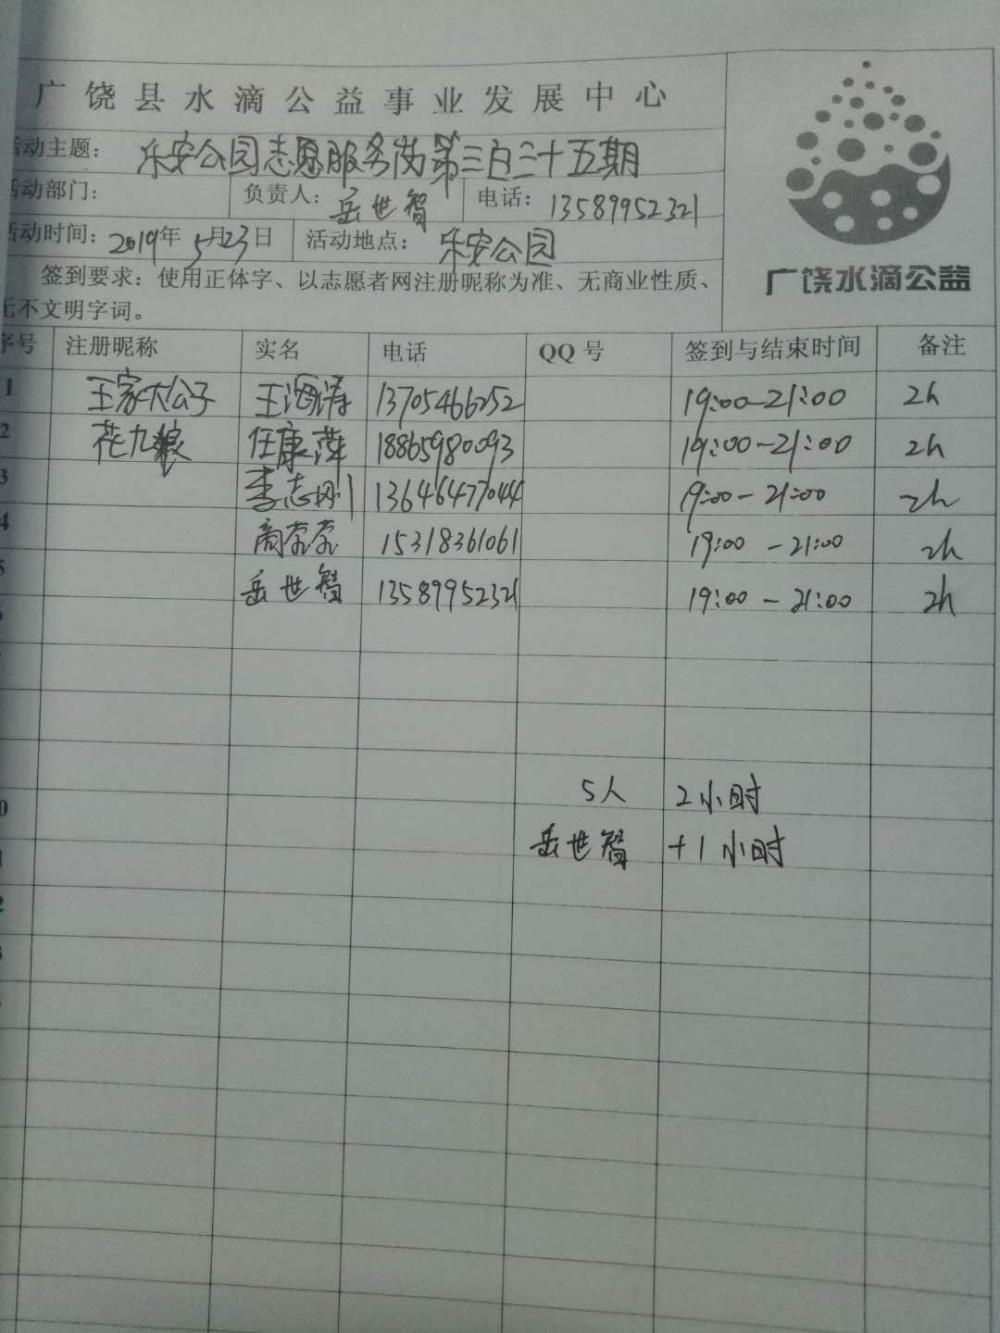 广饶县水滴公益事业发展中心
活动主题：乐安公园志愿服务岗第三百三十五期
活动部门： 负责人：岳世智 电话：13589952321
活动时间：2019年5月23日 活动地点：乐安公园
签到要求：使用正体字、以志愿者网注册昵称为准、无商业性质、
无不文明字词。
广饶水滴公益
序号 注册昵称 实名 电话 QQ号 签到与结束时间 备注
1 王家大公子 王海涛 13705466252 19:00-21:00 2h
2 花九粮 任康萍 18865980093 19:00-21:00 2h
3 李志刚 13646477044 19:00-21:00 2h
4 商蒙蒙 15318361061 19:00-21:00 2h
5 岳世智 13589952321 19:00-21:00 2h
5人 2小时
岳世智 +1小时